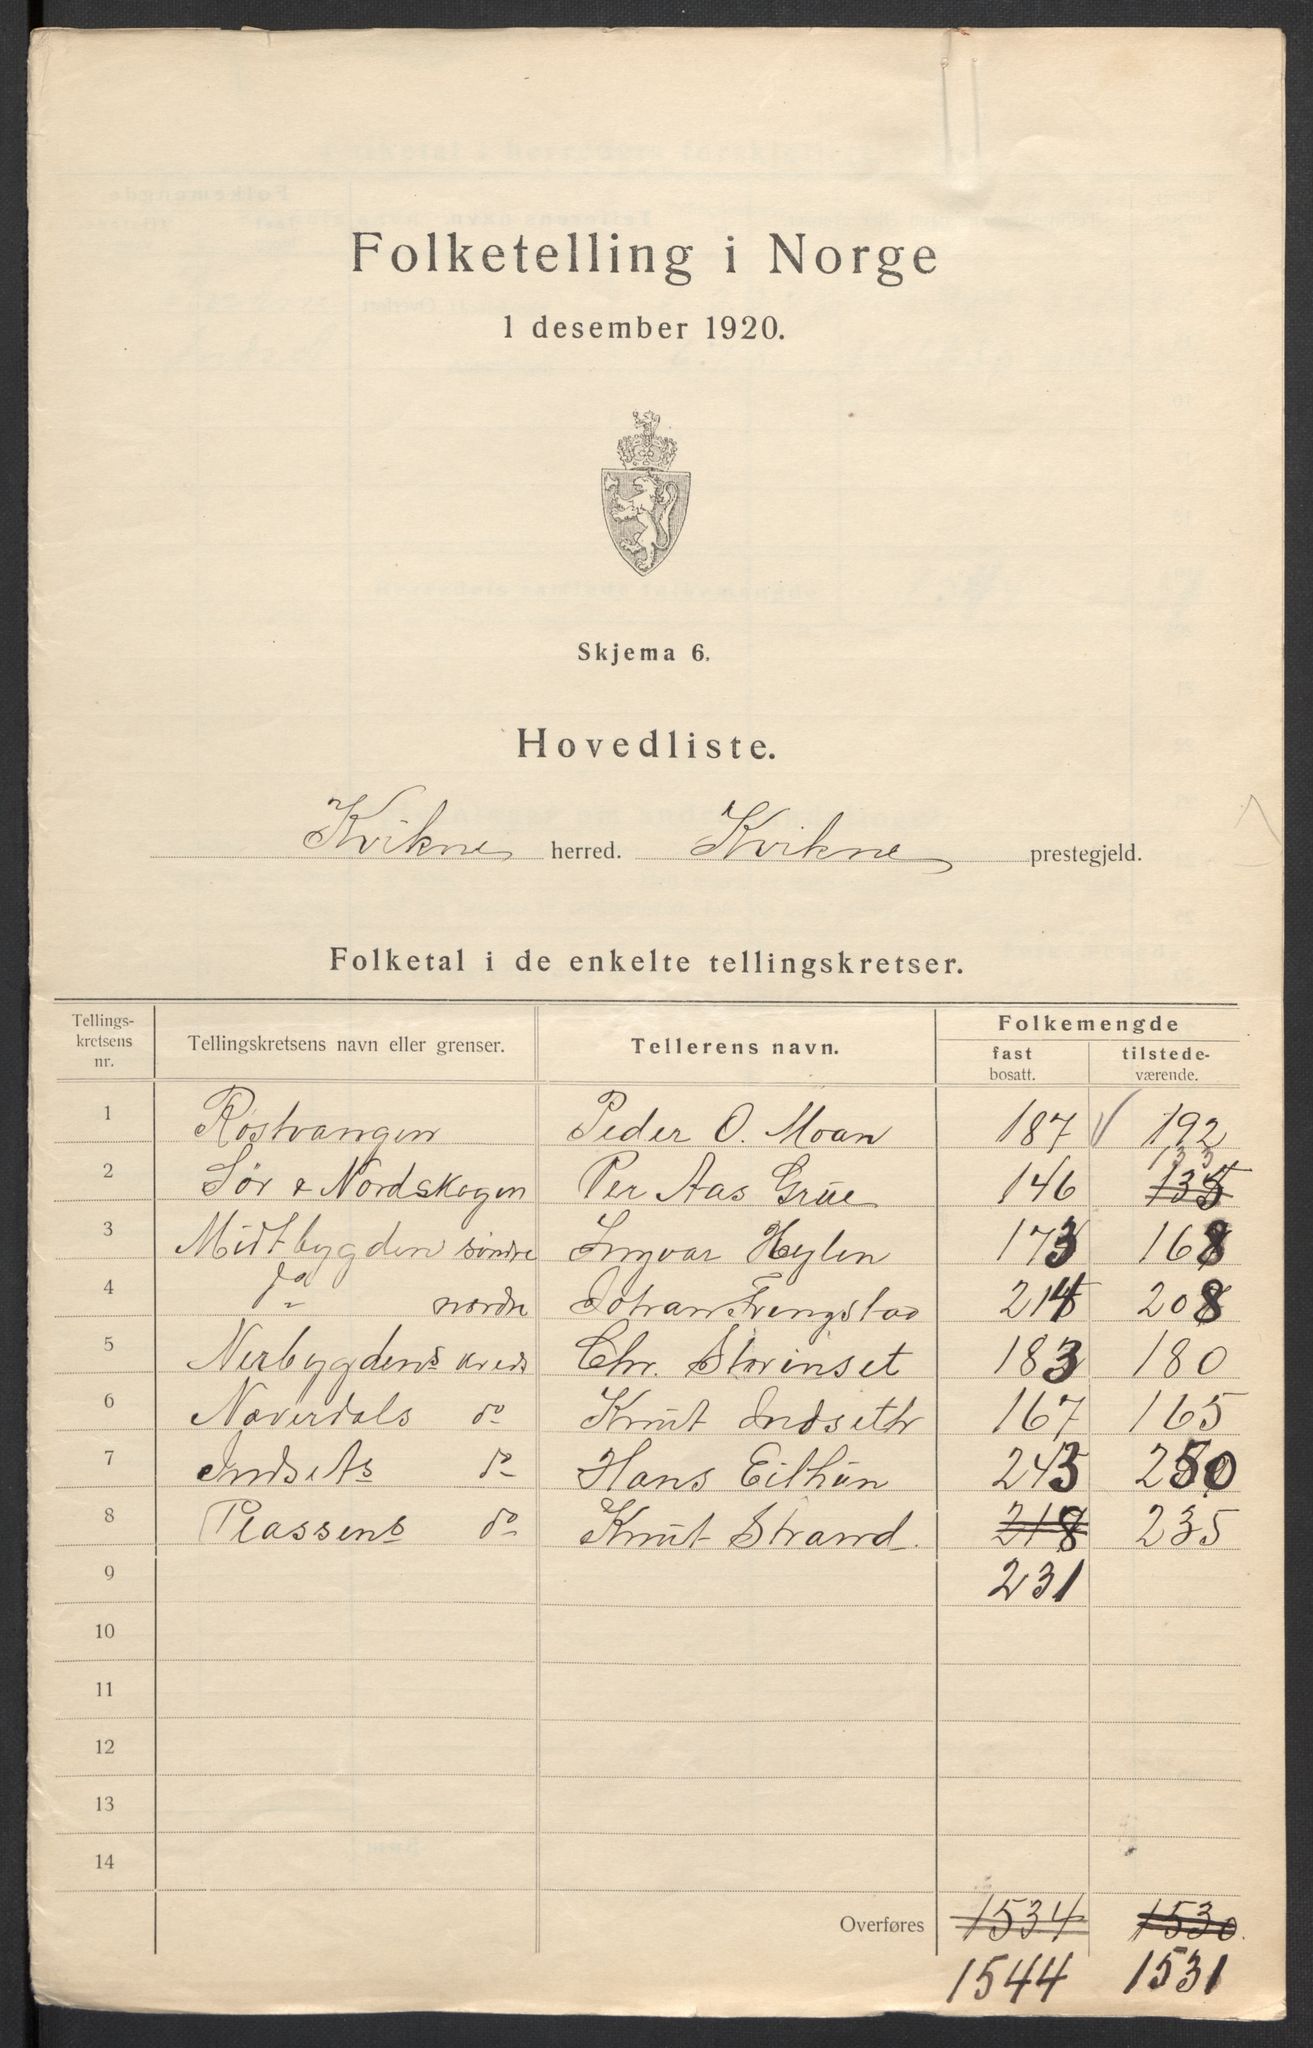 Folketelling i Norge
1 desember 1920.
Skjema 6.
Hovedliste.
Kvikne herred. Kvikne prestegjeld.
Folketal i de enkelte tellingskretser.
Tellings-kretsens nr. Tellingskretsens navn eller grenser. Tellerens navn. Folkemengde fast bosatt. tilstede-værende.
1 Røstvangen Peder O. Moan 187 √ 192
2 Sør & Nordskogen Per Aas Grue 146 135 133
3 Midtbygden søndre Ingvar Heylen 173 168
4 do nordre Johan Frengstad 214 208
5 Nerbygdens kreds Chr. Storinset 183 180
6 Næverdals do Knut Indseth 167 165
7 Indsets do Hans Eithun 243 250
8 Plassens do Knut Strand. 218 235
9 231
10
11
12
13
14
Overføres 1534 1530.
1544 1531